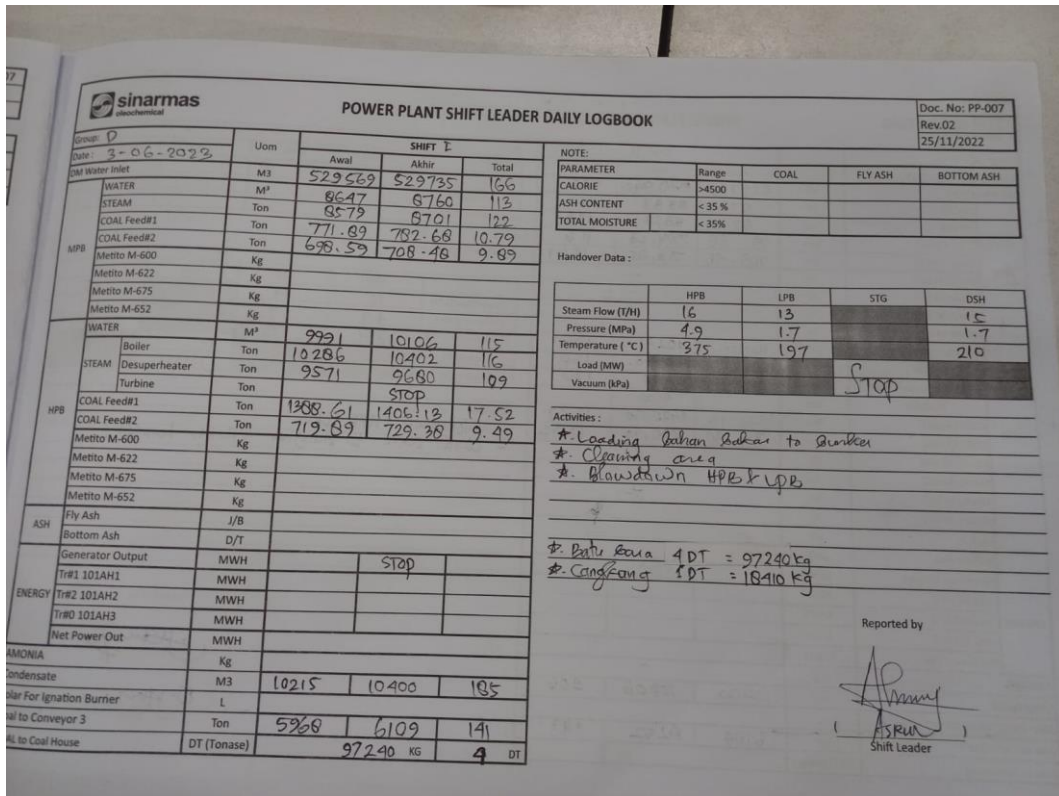 sinarmas
oleochemical
POWER PLANT SHIFT LEADER DAILY LOGBOOK
Doc. No: PP-007
Rev.02
25/11/2022
Group: D
Date: 3-06-2023
Uom
SHIFT I
Awal Akhir Total
DM Water Inlet M3 529569 529735 166
MPB
WATER M³ 8647 8760 113
STEAM Ton 8579 8701 122
COAL Feed#1 Ton 771.89 782.68 10.79
COAL Feed#2 Ton 698.59 708.48 9.89
Metito M-600 Kg
Metito M-622 Kg
Metito M-675 Kg
Metito M-652 Kg
HPB
WATER M³ 9991 10106 115
STEAM
Boiler Ton 10286 10402 116
Desuperheater Ton 9571 9680 109
Turbine Ton STOP
COAL Feed#1 Ton 1388.61 1406.13 17.52
COAL Feed#2 Ton 719.89 729.38 9.49
Metito M-600 Kg
Metito M-622 Kg
Metito M-675 Kg
Metito M-652 Kg
ASH
Fly Ash J/B
Bottom Ash D/T
ENERGY
Generator Output MWH STOP
Tr#1 101AH1 MWH
Tr#2 101AH2 MWH
Tr#0 101AH3 MWH
Net Power Out MWH
AMONIA Kg
Condensate M3 10215 10400 185
olar For Ignation Burner L
al to Conveyor 3 Ton 5968 6109 141
AL to Coal House DT (Tonase) 97240 KG 4 DT
NOTE:
PARAMETER Range COAL FLY ASH BOTTOM ASH
CALORIE >4500
ASH CONTENT < 35 %
TOTAL MOISTURE < 35%
Handover Data :
HPB LPB STG DSH
Steam Flow (T/H) 16 13 15
Pressure (MPa) 4.9 1.7 1.7
Temperature ( °C ) 375 197 210
Load (MW) STOP
Vacuum (kPa)
Activities :
*. Loading bahan bakar to Bunker
*. Cleaning area
*. Blowdown HPB & LPB
*. Batu bara 4 DT = 97240 kg
*. Cangkang 1 DT = 18410 kg
Reported by
( ASRUL )
Shift Leader